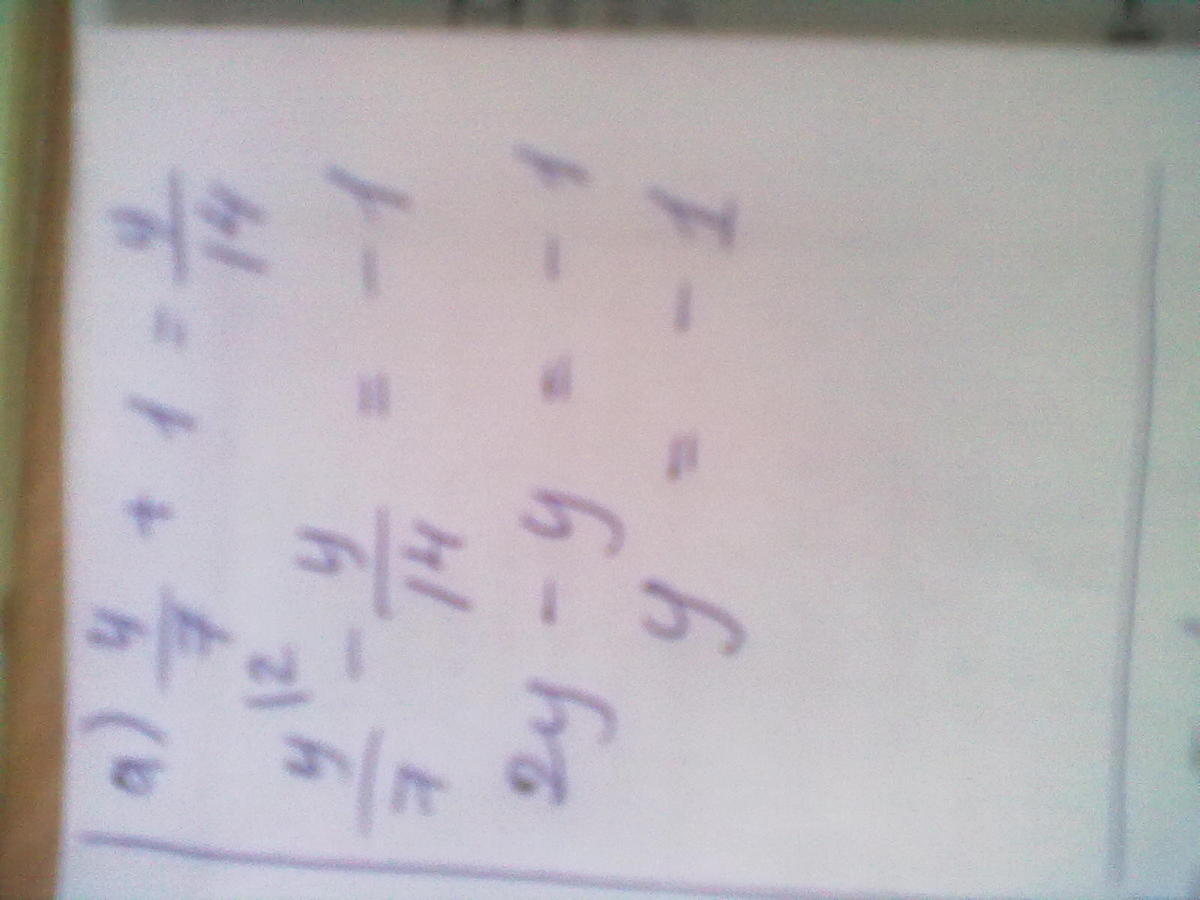 a) y/7 + 1 = y/14
y/7 |2 - y/14 = -1
2y - y = -1
y = -1